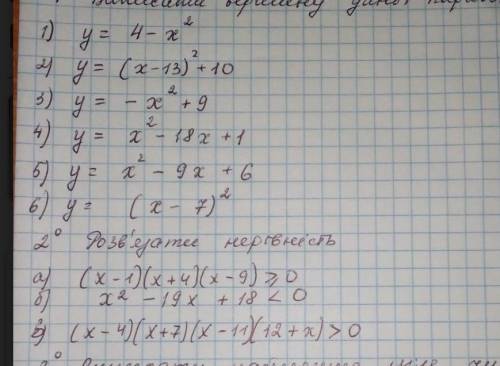 вершину даної
1) y = 4 - x²
2) y = (x-13)² + 10
3) y = - x² + 9
4) y = x² - 18x + 1
5) y = x² - 9x + 6
6) y = (x - 7)²
2° Розв'язати нерівність
а) (x-1)(x+4)(x-9) ⩾ 0
б) x² - 19x + 18 < 0
в) (x-4)(x+7)(x-11)(12+x) > 0